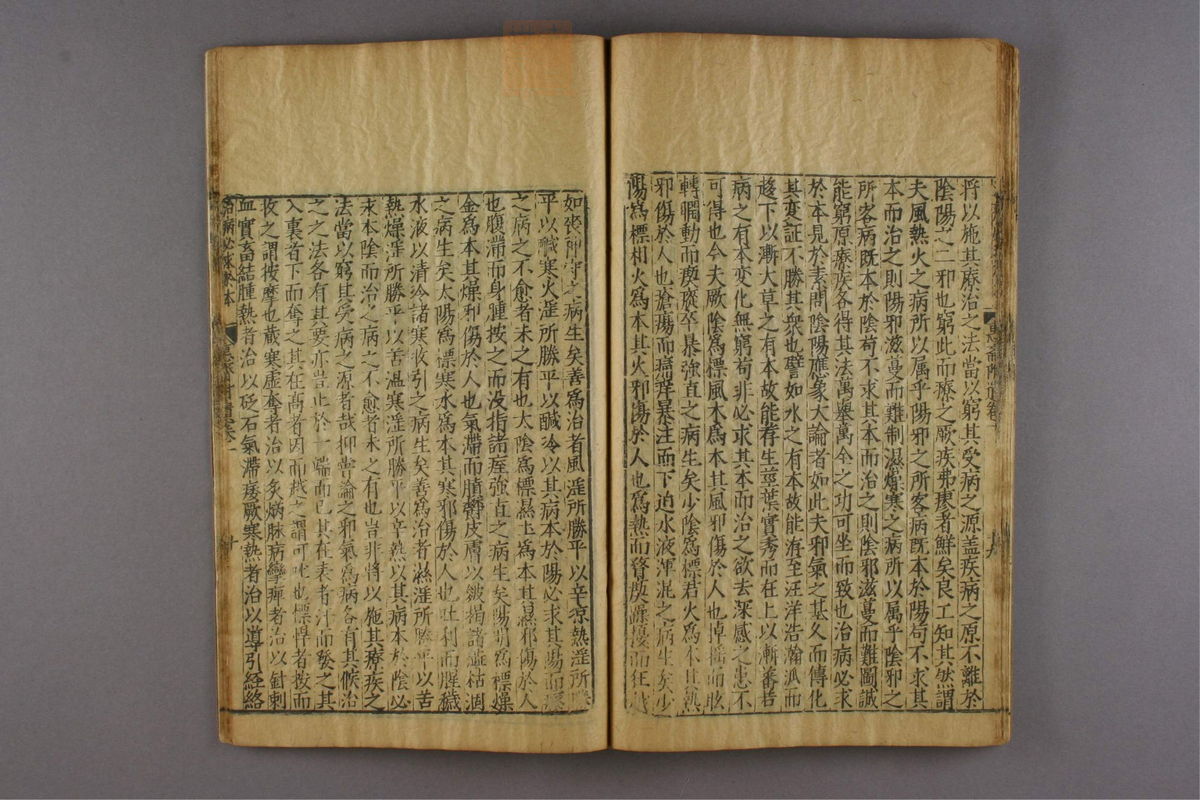 將以施其療治之法當以窮其受病之源盖疾病之原不離於
陰陽之二邪也窮此而療之厥疾弗瘳者鮮矣良工知其然謂
夫風熱火之病所以属乎陽邪之所客病既本於陽苟不求其
本而治之則陽邪滋蔓而難制濕燥寒之病所以属乎陰邪之
所客病既本於陰苟不求其本而治之則陰邪滋蔓而難圖誠
能窮原療疾各得其法萬舉萬全之功可坐而致也治病必求
於本見於素問陰陽應象大論者如此夫邪氣之基久而傳化
其変証不勝其衆也譬如水之有本故能游至汪洋浩瀚派而
趍下以漸大草之有本故能荐生莖葉實秀而在上以漸蕃若
病之有本変化無窮苟非必求其本而治之欲去深感之患不
可得也今夫厥陰為標風木為本其風邪傷於人也掉摇而眩
轉瞤動而瘈瘲卒暴強直之病生矣少陰為標君火為本其熱
邪傷於人也瘡瘍而痛痒暴注而下迫水液渾混之病生矣少
陽為標相火為本其火邪傷於人也為熱而瞀瘛躁擾而狂越
如喪神守之病生矣善為治者風淫所勝平以辛凉熱淫所勝
平以鹹寒火淫所勝平以鹹冷以其病本於陽必求其陽而療
之病之不愈者未之有也太陰為標濕土為本其濕邪傷於人
也腹滿而身腫按之而没指諸痙強直之病生矣陽明為標燥
金為本其燥邪傷於人也氣滯而膹欝皮膚以皴揭諸澁枯涸
之病生矣太陽為標寒水為本其寒邪傷於人也吐利而腥穢
水液以清冷諸寒收引之病生矣善為治者濕淫所勝平以苦
熱燥淫所勝平以苦温寒淫所勝平以辛熱以其病本於陰必
求本陰而治之病之不愈者未之有也豈非將以施其療疾之
法當以窮其受病之源者哉抑嘗論之邪氣為病各有其候治
之之法各有其要亦豈止於一端而已其在表者汗而發之其
入裏者下而奪之其在高者因而越之謂可吐也慓悍者按而
收之謂按摩也藏寒虚奪者治以灸焫脉病攣痺者治以針刺
血實畜結腫熱者治以砭石氣滯痿厥寒熱者治以導引經絡
治病必求於本